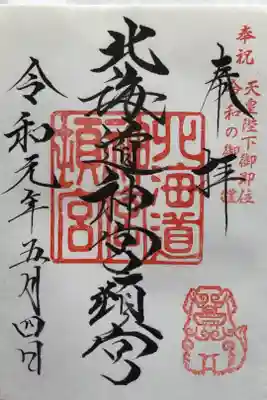 奉祝 天皇陛下御即位
令和の御代
奉拝
北海道神宮頓宮
北海道
神宮
頓宮
令和元年五月四日